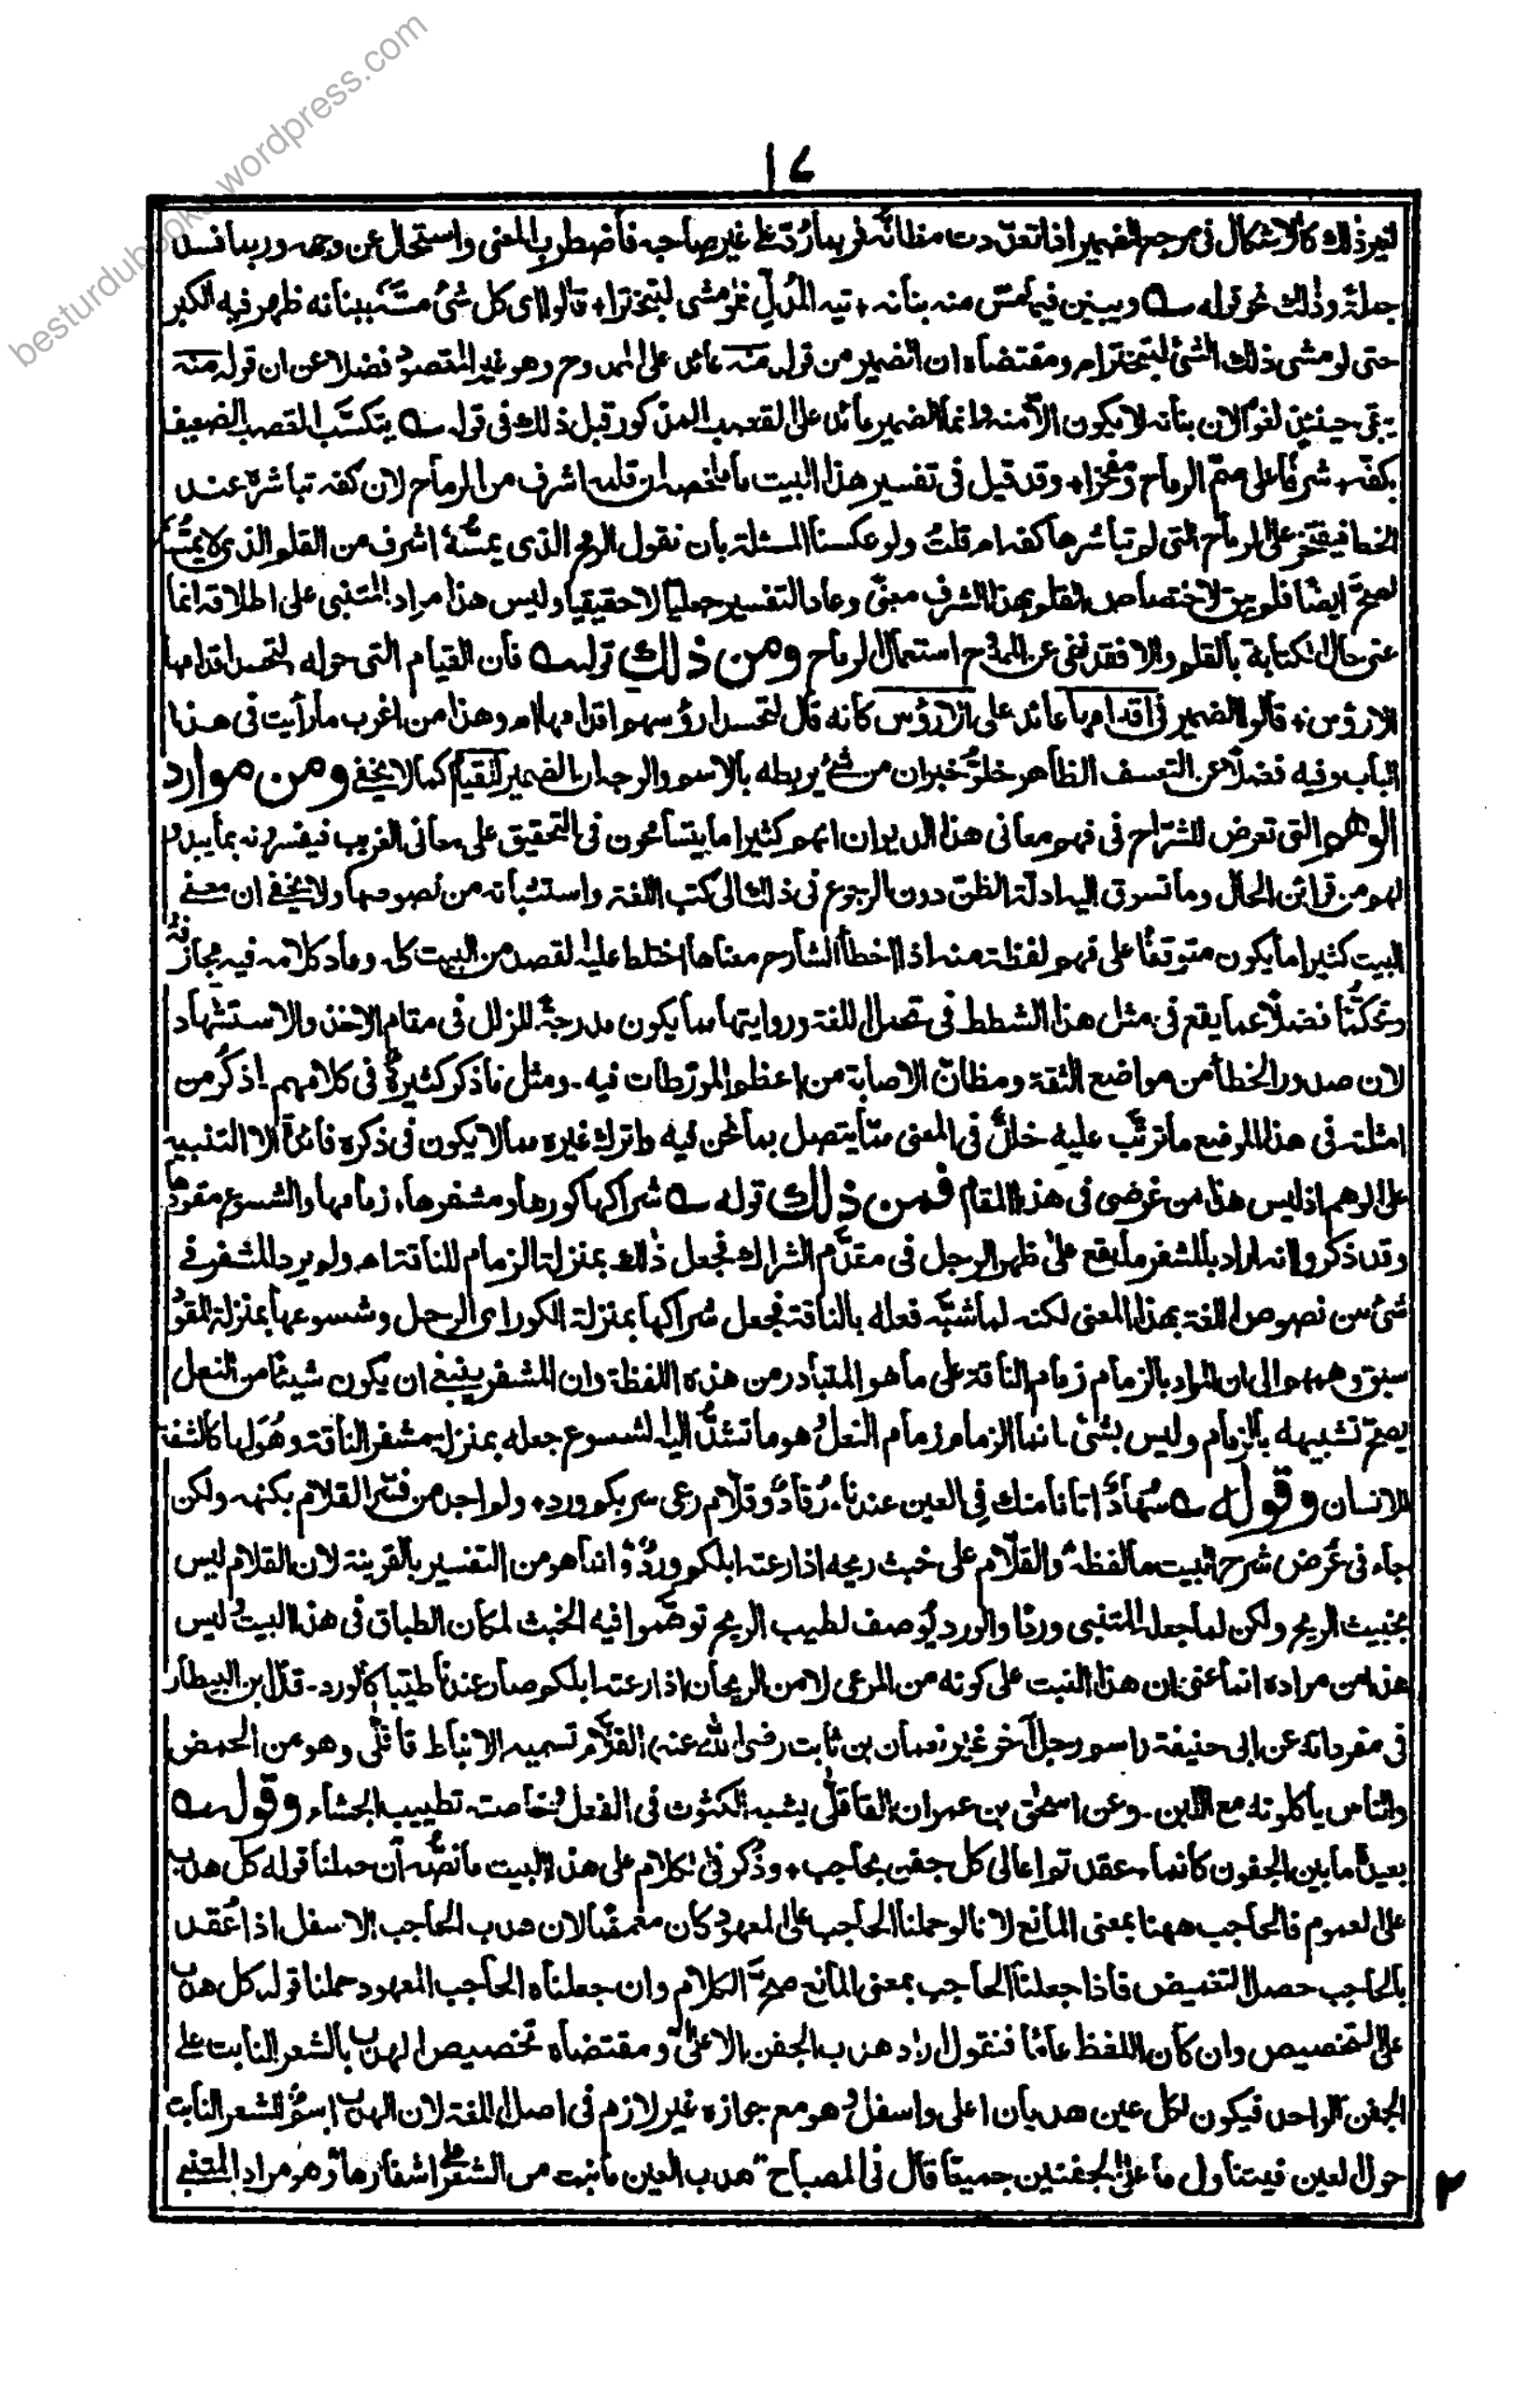 besturdubooks.wordpress.com
١٧
لغير ذلك كالاشكال فى مرجع الضمير اذا تعددت مظانّه فربما ردّ على غير صاحبه فاضطرب المعنى واستحال عن وجهه وربما فسد
جملةً وذلك نحو قوله ؎ ويبين فيما مسّ منه بنانه + تيه المُدلّ فلو مشى لتبخترا + قالوا اى كل شئ مسّه ببنانه ظهر فيه الكبر
حتى لو مشى ذلك الشئ لتبختر اه ومقتضاه ان الضمير من قوله منه عائد على الممدوح وهو غير المقصود فضلا عن ان قوله منه
يبقى حينئذٍ لغوًا لان بنانه لا يكون الا منه وانما الضمير عائد على القصب المذكور قبل ذلك فى قوله ؎ يتكسّب القصب الضعيف
بكفّه + شرفًا على صمّ الرماح ومفخرا + وقد قيل فى تفسير هذا البيت ما ملخصه ان قلمه اشرف من الرماح لان كفه تباشره عند
الخط فيفتخر على الرماح التى لم تباشرها كفه اه قلت ولو عكسنا المسئلة بان نقول الرمح الذى يمسّه اشرف من القلم الذى لا يمسّه
لصحّ ايضًا فلم يبق لاختصاص القلم بهذا الشرف معنًى وعاد التفسير جدليا لا حقيقيا وليس هذا مراد المتنبى على اطلاقه انما
عنى حال الكتابة بالقلم والا فقد نفى عن الممدوح استعمال الرماح ومن ذلك قوله ؎ فان القيام التى حوله + لتحسد اقدامها
الارؤس + قالوا الضمير فى اقدامها عائد على الارؤس كانه قال لتحسد ارؤسهم اقدامها اه وهذا من اغرب ما رأيت فى هذا
الباب وفيه فضلًا عن التعسف الظاهر خلوّ خبر ان من شئ يربطه بالاسم والوجه ان الضمير للقيام كما لا يخفى ومن موارد
الوهم التى تعرض للشرّاح فى فهم معانى هذا الديوان انهم كثيرا ما يتسامحون فى التحقيق على معانى الغريب فيفسرونه بما يبدو
لهم من قرائن الحال وما تسوق اليه ادلة الظنّ دون الرجوع فى ذلك الى كتب اللغة واستثباته من نصوصها ولا يخفى ان معنى
البيت كثيرا ما يكون متوقفًا على فهم لفظة منه اذا اخطأ الشارح معناها اختلط عليه القصد من البيت كله وعاد كلامه فيه مجازفةً
وتحكّمًا فضلًا عما يقع فى مثل هذا الشطط فى نقل اللغة وروايتها مما يكون مدرجةً للزلل فى مقام الاخذ والاستشهاد
لان صدور الخطأ من مواضع الثقة ومظانّ الاصابة من اعظم المورّطات فيه - ومثل ما ذكر كثيرةٌ فى كلامهم اذكُر من
امثلته فى هذا الموضع ما ترتّب عليه خللٌ فى المعنى ممّا يتصل بما نحن فيه واترك غيره مما لا يكون فى ذكره فائدةٌ الا التنبيه
على الوهم اذ ليس هذا من غرضى فى هذا المقام فمن ذلك قوله ؎ شراكها كورها ومشفرها + زمامها والشسوع مقودها
وقد ذكروا انه اراد بالمشفر ما يقع على ظهر الرجل فى مقدّم الشراك فجعل ذلك بمنزلة الزمام للناقة اه ولم يرد المشفر فى
شئ من نصوص اللغة بهذا المعنى لكنه لما شبّه نعله بالناقة فجعل شراكها بمنزلة الكور اى الرحل وشسوعها بمنزلة المقود
سبق وهمهم الى ان المراد بالزمام زمام الناقة على ما هو المتبادر من هذه اللفظة وان المشفر ينبغى ان يكون شيئا من النعل
يصحّ تشبيهه بالزمام وليس بشئ انما الزمام زمام النعل هو ما تشدّ اليه الشسوع جعله بمنزلة مشفر الناقة وهو لها كالشفة
للانسان وقوله ؎ سُهادٌ اتانا منك فى العين عندنا + رُقادٌ وقلّام رعى سربكم ورد + ولم اجد من فسّر القلام بكنهه ولكن
جاء فى عَرض شرح البيت ما لفظه والقلّام على خبث ريحه اذا رعته ابلكم وردٌ وانما هو من التفسير بالقرينة لان القلام ليس
بخبيث الريح ولكن لما جعله المتنبى وردًا والورد يوصف لطيب الريح توهّموا فيه الخبث لمكان الطباق فى هذا البيت وليس
هذا من مراده انما عنى ان هذا النبت على كونه من المرعى لا من الريحان اذا رعته ابلكم صار عندنا طيّبا كالورد - قال ابن البيطار
فى مفرداته عن ابى حنيفة (اسم رجل آخر غير نعمان بن ثابت رضى الله عنه) القلّام تسميه الانباط قاقلّى وهو من الحمض
والناس يأكلونه مع اللبن - وعن اسحٰق بن عمران القاقلّى يشبه الكشوث فى الفعل وخاصته تطييب الجشاء وقوله ؎
بعيدةُ ما بين الجفون كانما + عقدتم اعالى كل جفن بحاجب + وذُكر فى الكلام على هذا البيت ما نصّه ان حملنا قوله كل هدب
على العموم فالحاجب ههنا بمعنى المانع لانا لو حملنا الحاجب على المعهود كان متمحّضًا لان هدب الحاجب الاسفل اذا عُقد
بالحاجب حصل التغميض فاذا جعلنا الحاجب بمعنى المانع صحّ الكلام وان جعلناه الحاجب المعهود حملنا قوله كل هدب
على التخصيص وان كان اللفظ عامًّا فنقول اراد هدب الجفن الاعلى ومقتضاه تخصيص الهدب بالشعر النابت على
الجفن الواحد فيكون لكل عين هدبان اعلى واسفل وهو مع جوازه غير لازم فى اصل اللغة لان الهدب اسمٌ للشعر النابت
حول العين فيتناول ما على الجفنين جميعًا قال فى المصباح "هدب العين ما نبت من الشعر على اشفارها" وهو مراد المتنبى
٢